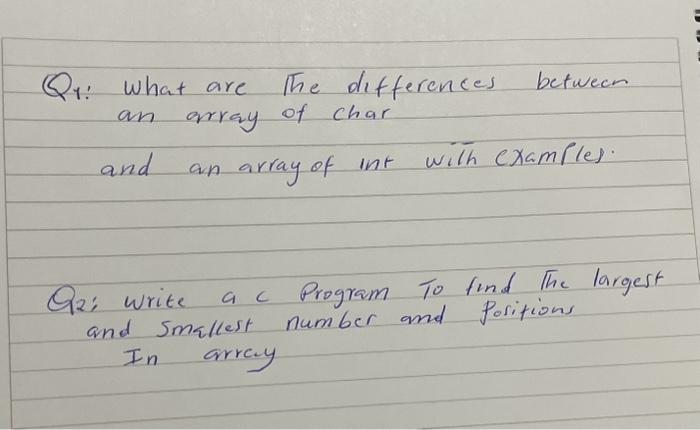 Q1: What are The differences between
an array of char
and an array of int with examples.
Q2: Write a c Program To find The largest
and Smallest number and Positions
In array